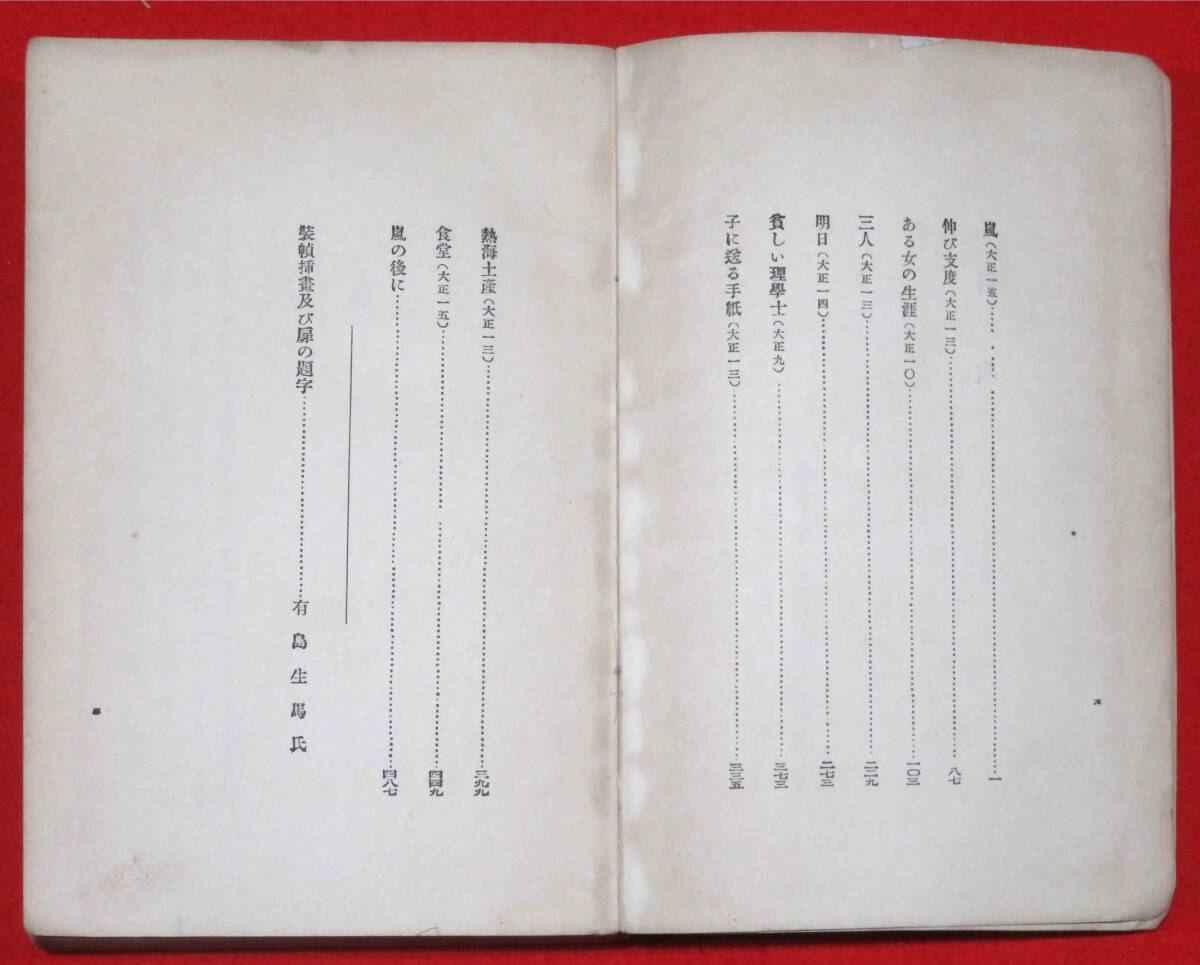 嵐(大正一五)……………一
伸び支度(大正一三)……………八七
ある女の生涯(大正一〇)……………一〇三
三人(大正一三)……………二二九
明日(大正一四)……………二七三
貧しい理學士(大正九)……………三七三
子に送る手紙(大正一三)……………三三五
熱海土産(大正一三)……………三九九
食堂(大正一五)……………四四九
嵐の後に……………四八七
裝幀挿畫及び扉の題字……………有島生馬氏